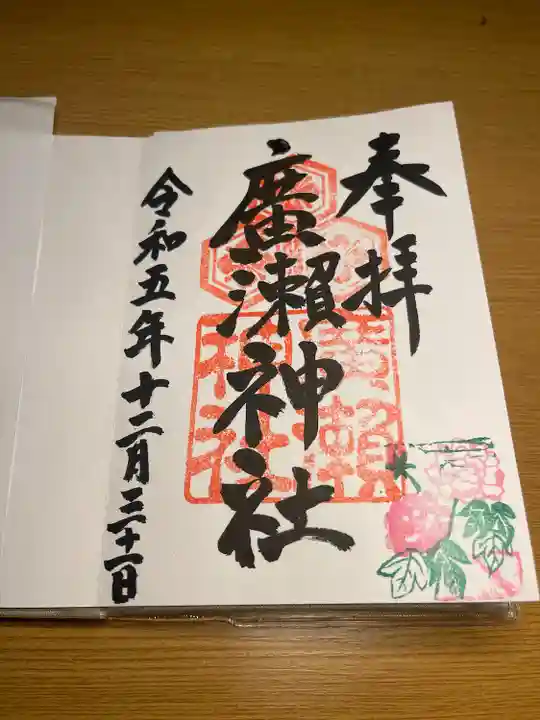 奉拝
廣瀬神社
廣瀬神社
令和五年十二月三十一日